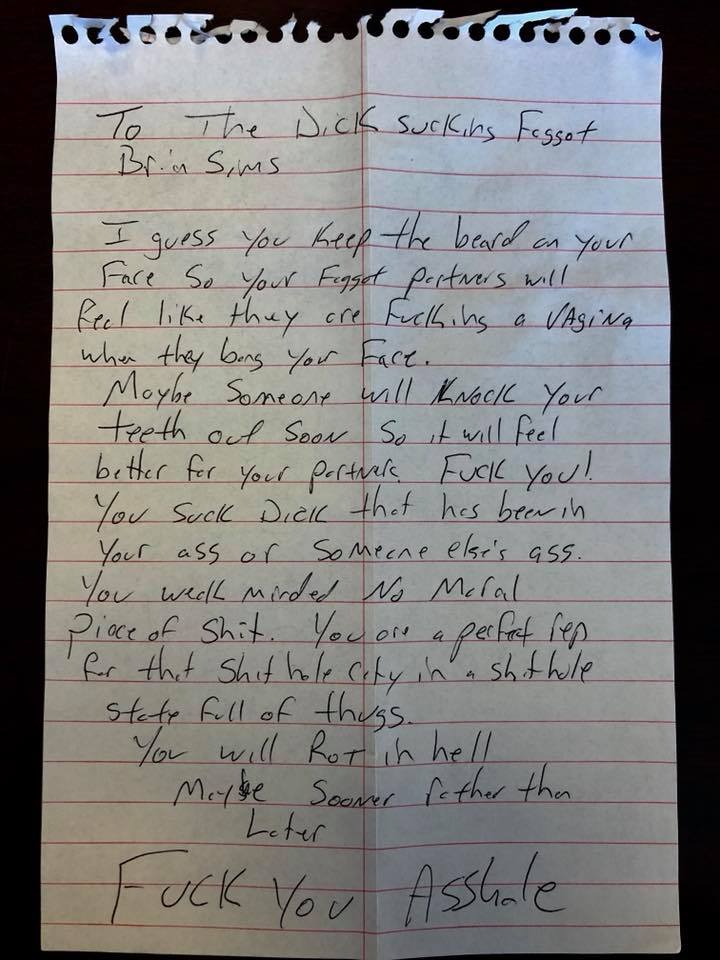 To The Dick sucking Faggot
Brian Sims
I guess you keep the beard on your
Face So your Faggot partners will
feel like they are Fucking a VAgiNa
when they bang your Face.
Maybe Someone will KNOCK your
teeth out Soon So it will feel
better for your partners. Fuck you!
You Suck Dick that has been in
your ass or someone else's ass.
You weak minded No Moral
piece of Shit. You are a perfect rep
for that Shit hole City in a shithole
state full of thugs.
You will Rot in hell
Maybe Sooner rather than
Later
Fuck You Asshole